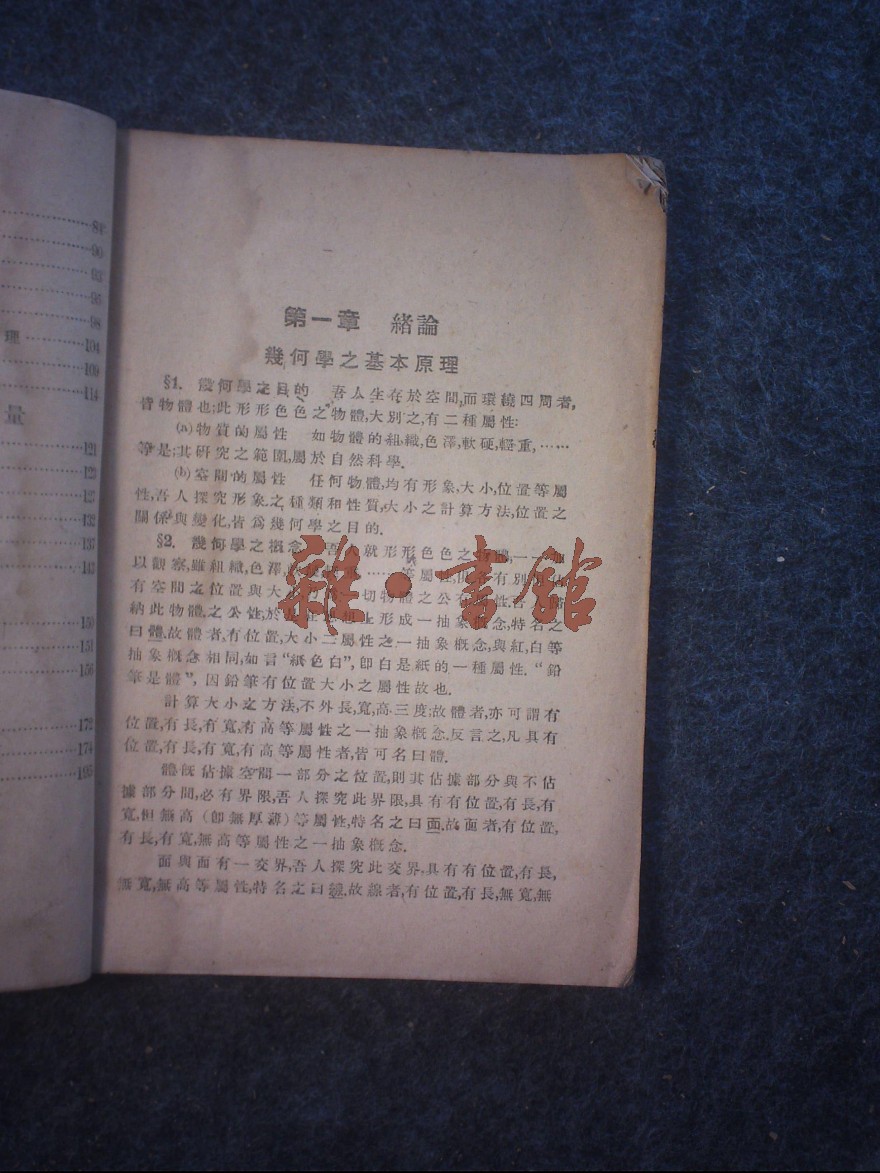 84
90
93
95
98
理 104
109
114
量
121
123
127
132
137
143
150
151
156
172
174
195
第一章 緒論
幾何學之基本原理
§1. 幾何學之目的 吾人生存於空間,而環繞四周者,
皆物體也;此形形色色之物體,大別之,有二種屬性:
(a)物質的屬性 如物體的組織,色澤,軟硬,輕重,……
等是;其研究之範圍,屬於自然科學.
(b)空間的屬性 任何物體,均有形象,大小,位置等屬
性,吾人探究形象之種類和性質,大小之計算方法,位置之
關係與變化,皆爲幾何學之目的.
§2. 幾何學之概念 吾人就形形色色之物體,一一加
以觀察,雖組織,色澤,……等屬性,有別
有空間之位置與大 一切物體之公有屬性
納此物體之公性,於 上形成一抽象概念,特名之
曰體.故體者,有位置,大小二屬性之一抽象概念,與紅,白等
抽象概念相同,如言“紙色白”,卽白是紙的一種屬性.“鉛
筆是體”,因鉛筆有位置大小之屬性故也.
計算大小之方法,不外長,寬,高三度;故體者,亦可謂有
位置,有長,有寬,有高等屬性之一抽象概念.反言之,凡具有
位置,有長,有寬,有高等屬性者,皆可名曰體.
體旣佔據空間一部分之位置,則其佔據部分與不佔
據部分間,必有界限,吾人探究此界限,具有有位置,有長,有
寬,但無高(卽無厚薄)等屬性,特名之曰面.故面者,有位置,
有長,有寬,無高等屬性之一抽象概念.
面與面有一交界,吾人探究此交界,具有有位置,有長,
無寬,無高等屬性,特名之曰線.故線者,有位置,有長,無寬,無
雜·書館